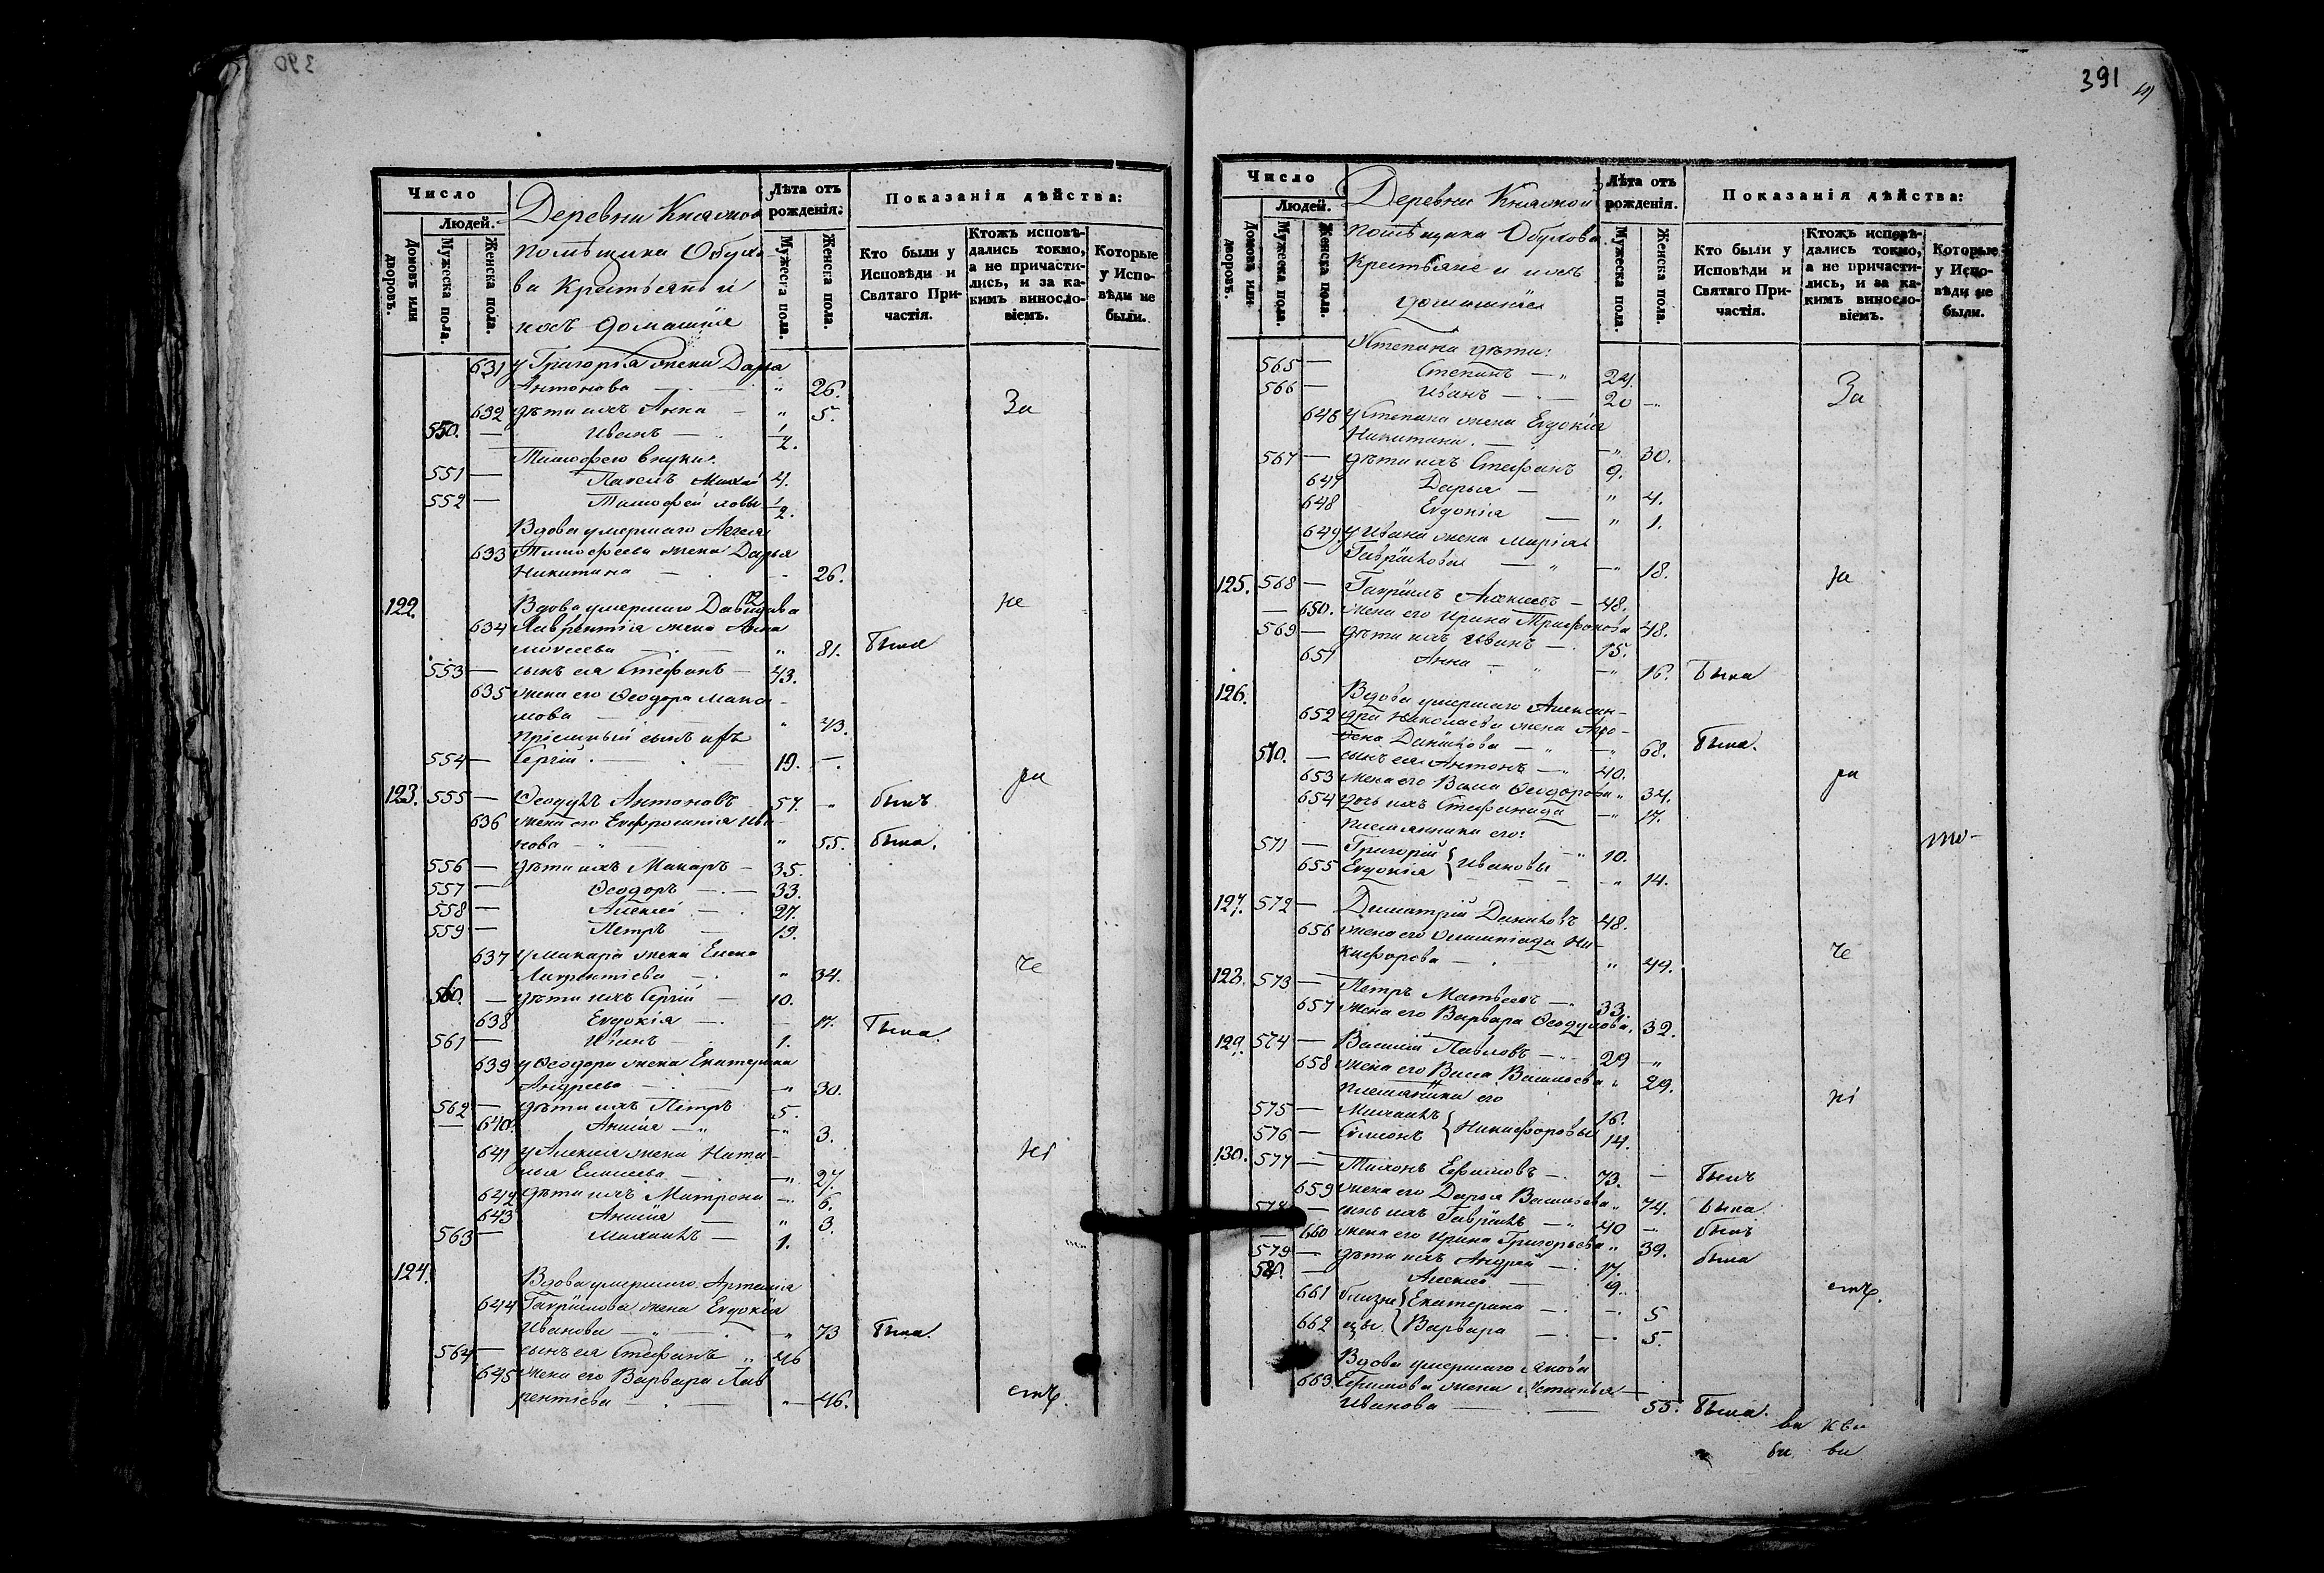 390
Число
Людей.
Домовъ или дворовъ.
Мужеска пола.
Женска пола.
Деревни Княжной
помѣщика Обухо-
ва Крестьянѣ и
ихъ домашніе
Лѣта отъ рожденія.
Мужеска пола.
Женска пола.
Показанія дѣйства:
Кто были у Исповѣди и Святаго Причастія.
Ктожъ исповѣдались токмо, а не причастились, и за какимъ винословіемъ.
Которые у Исповѣди не были.
631 у Григорія жена Дарья
Антонова — " 26.
632 дѣти ихъ Анна — " 5. За
550. — Иванъ — 1/2.
Тимофею внуки:
551 — Павелъ Михай 4.
552 — Тимофей ловы 1/2.
Вдова умершаго Алексѣя
633 Тимофеева жена Дарья
Никитина — 26.
122. Вдова умершаго Давыдова не
634 Лаврентія жена Анна
Моисеева — " 81. была
553 — сынъ ея Стефанъ — 43.
635 жена его Ѳеодора Макси-
мова — " 43.
Пріемный сынъ ихъ
554 — Сергій. — 19. —
123. 555 — Ѳеодулъ Антоновъ 57. " былъ
636 жена его Евфросинія Ива-
нова — " 55. была.
556 — дѣти ихъ Макаръ — 35.
557 — Ѳеодоръ — 33.
558 — Алексѣй — 27.
559 — Петръ 19.
637 у Макара жена Елена
Лаврентіева — " 34.
560. — дѣти ихъ Сергій — 10.
638 Евдокія — 17. была.
561 — Иванъ — 1.
639 у Ѳеодора жена Екатерина
Андреева — " 30.
562 — дѣти ихъ Петръ 5.
640. Анисія — " 3.
641 у Алексѣя жена Ната-
лья Елисеева — " 27.
642 дѣти ихъ Матрона — 6.
643 Анисія — " 3.
563 — Михаилъ — 1.
124. Вдова умершаго Артемія
644 Гавриилова жена Евдокія
Иванова — " 73 была.
564 — сынъ ея Стефанъ " 46
645 жена его Варвара Лав
рентіева — " 46.
391
Число
Людей.
Домовъ или дворовъ.
Мужеска пола.
Женска пола.
Деревни Княжной
помѣщика Обухова
Крестьяне и ихъ
домашніе
Лѣта отъ рожденія.
Мужеска пола.
Женска пола.
Показанія дѣйства:
Кто были у Исповѣди и Святаго Причастія.
Ктожъ исповѣдались токмо, а не причастились, и за какимъ винословіемъ.
Которые у Исповѣди не были.
Степана дѣти:
565 — Степанъ — " 24.
566 — Иванъ — 20 — За
646 у Степана жена Евдокія
Никитина. — " 30.
567 — дѣти ихъ Стефанъ 9.
647 Дарья — " 4.
648 Евдокія — " 1.
649. у Ивана жена Марія
Гавриилова — " 18.
125. 568 — Гавриилъ Алексѣевъ — 48.
— 650. жена его Ирина Трифонова 48.
569 — дѣти ихъ Иванъ — 15.
651 Анна — " 16. была
126. Вдова умершаго Алексан-
652 дра Николаева жена Агра-
фена Данилова — " 68. была.
570. — сынъ ея Антонъ — 40.
653 жена его Васса Ѳеодорова " 34.
654 дочь ихъ Стефанида — " 17.
племянники его:
571 — Григорій } — " 10.
655 Евдокія } Ивановы — " 14.
127. 572 — Димитрій Даниловъ 48.
656 жена его Олимпіада Ни-
кифорова — " 49.
128. 573 — Петръ Матвѣевъ — 33.
657 жена его Варвара Ѳеодулова. 32.
129. 574 — Василій Павловъ — 29 — "
658 жена его Васса Васильева " 29.
племянники его
575 — Михаилъ } 16.
576 — Симонъ } Никифоровы 14.
130. 577 — Тихонъ Ефимовъ — 73. — былъ
659 жена его Дарья Васильева " 74. была
578 — сынъ ихъ Гавриилъ — " 40 — " былъ
— 660 жена его Ирина Григорьева " 39. была
579 — дѣти ихъ Андрей — 17.
580. — Алексѣй — 9.
661 близне { Екатерина — 5
662 цы { Варвара — 5.
Вдова умершаго Якова
663. Ефимова жена Устинья —
Иванова — 55. была.